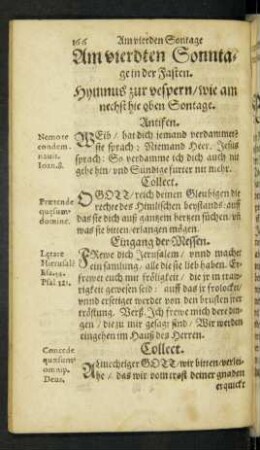 166 Am vierden Sontage
Am vierdten Sonnta-
ge in der Fasten.
Hymnus zur vespern/wie am
nechst hie oben Sontage.
Antifen.
Nemo te
condem-
nauit.
Ioan. 8.
WEib/ hat dich jemand verdammet?
sie sprach: Niemand Herr. Jesus
sprach: So verdamme ich dich auch nit
gehe hin/ und Sündige furter nit mehr.
Collect.
Prætende
quæsum9
domine.
O GOTT/ reich deinen Gleubigen die
rechte des Himlischen beystands: auff
das sie dich auß gantzem hertzen suchen/ vñ
was sie bitten/ erlangen mögen.
Eingang der Messen.
Lętare
Hierusalē
Esa. 
Psal. 121.
FRewe dich Jerusalem/ vnnd machet
ein samlung/ alle die sie lieb haben. Er-
frewet euch mit fröligkeit/ die jr in traw-
rigkeit gewesen seid: auff das jr frolocket/
vnnd ersettiget werdet von den brüsten jrer
tröstung. Verß. Ich frewe mich deren din-
gen/ die zu mir gesagt sind/ Wir werden
eingehen im Hauß des Herren.
Collect.
Concede
quæsum9
omnip.
Deus.
ALmechtiger GOTT/ wir bitten/ verlei-
he/ das wir vom trost deiner gnaden
erquickt